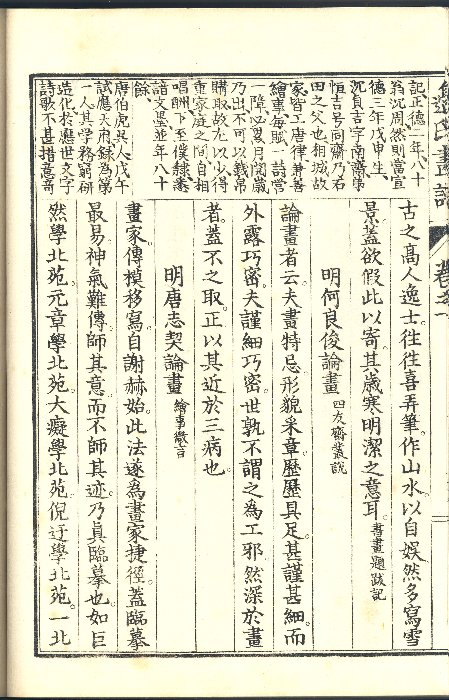 記正德二年八十
翁沉周然則當宣
德三年戊申生、
沉貞吉字南齋
恒吉号同齋乃石
田之父也相城故
家皆工唐律兼善
繪事每賦一詩營
一障必累月閱歲
乃出不可以幣帛
購取故尤以少得
重家庭之間自相
唱酬下至僕隸悉
諳文墨並年八十
餘、
唐伯虎吳人戊午
試應天府錄為第
一人其學務窮研
造化於應世文字
詩歌不甚措意奇
古之高人逸士。往往喜弄筆。作山水以自娛。然多寫雪
景。蓋欲假此以寄其歲寒明潔之意耳。書畫題跋記
明何良俊論畫 四友齋叢說
論畫者云。夫畫特忌形貌采章。歷歷具足。甚謹甚細。而
外露巧密。夫謹細巧密。世孰不謂之為工邪。然深於畫
者。蓋不之取。正以其近於三病也。
明唐志契論畫 繪事微言
畫家傳模移寫。自謝赫始。此法遂為畫家捷徑。蓋臨摹
最易。神氣難傳。師其意。而不師其迹。乃真臨摹也。如巨
然學北苑。元章學北苑。大癡學北苑。倪迂學北苑。一北